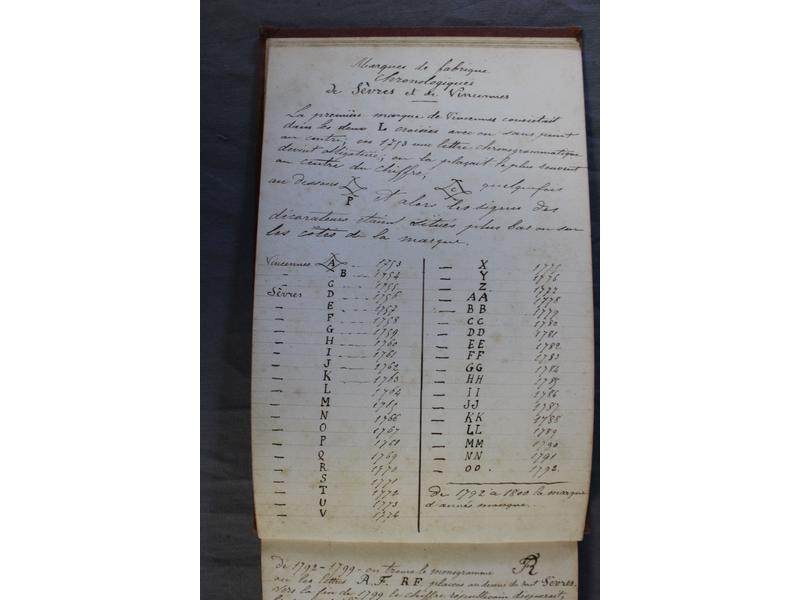 Marques de fabrique
chronologiques
de Sèvres et de Vincennes
La première marque de Vincennes consistait
dans les deux L croisées avec ou sans point
au centre; en 1753 une lettre chronogrammatique
devint obligatoire; on la plaçait le plus souvent
au centre du chiffre,
au dessous P C quelquefois
et alors les signes des
décorateurs étaient situés plus bas ou sur
les côtés de la marque.
Vincennes A 1753
" B 1754
C 1755
Sèvres D 1756
— E 1757
— F 1758
— G 1759
— H 1760
— I 1761
— J 1762
— K 1763
— L 1764
— M 1765
— N 1766
— O 1767
— P 1768
— Q 1769
— R 1770
— S 1771
— T 1772
— U 1773
— V 1774
— X 1775
— Y 1776
— Z 1777
— AA 1778
— BB 1779
— CC 1780
— DD 1781
— EE 1782
— FF 1783
— GG 1784
— HH 1785
— II 1786
— JJ 1787
— KK 1788
— LL 1789
— MM 1790
— NN 1791
— OO . 1792.
De 1792 à 1800 la marque
d'année manque.
de 1792-1799 - on trouve le monogramme FR
ou les lettres R.F. RF. placées au dessus du mot Sèvres.
Vers la fin de 1799 le chiffre républicain disparait,